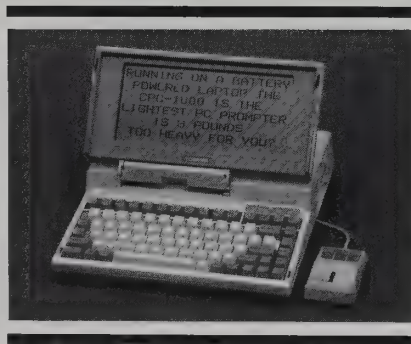 RUNNING ON A BATTERY
POWERED LAPTOP THE
CPC-1000 IS THE
LIGHTEST PC PROMPTER
IS 9 POUNDS
TOO HEAVY FOR YOU?